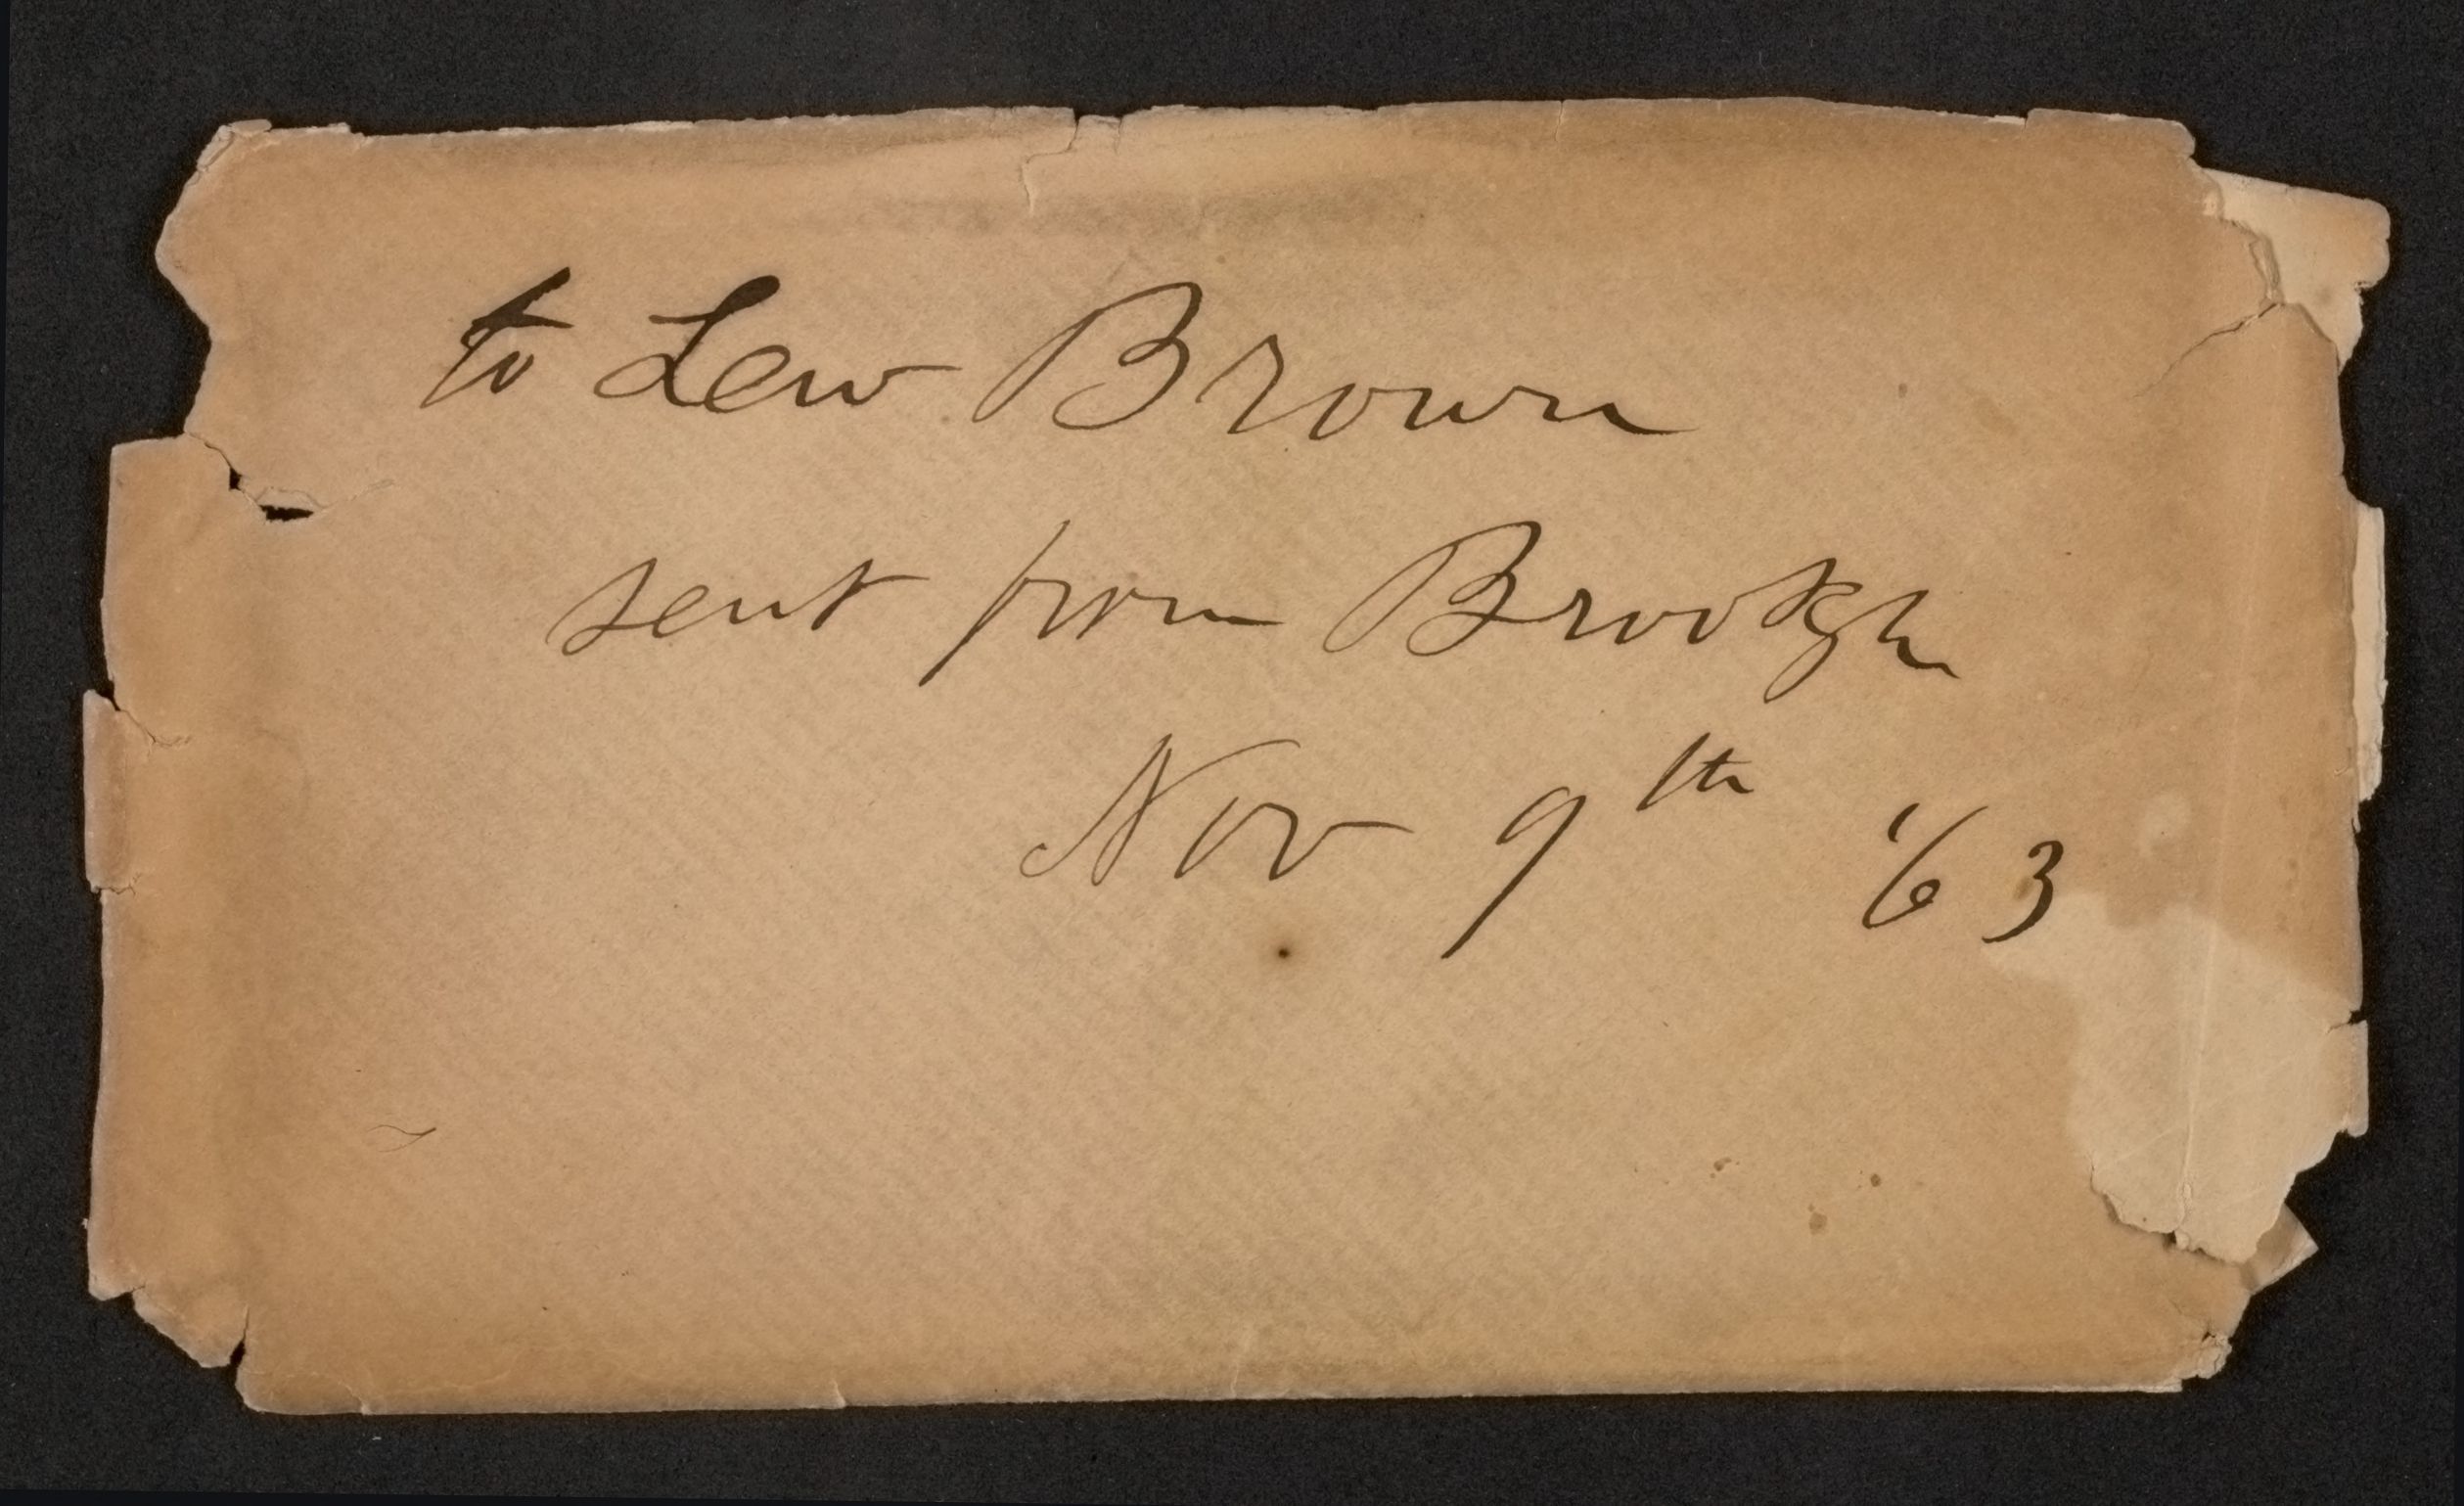 to Lew Brown
sent from Brookyn
Nov 9th '63